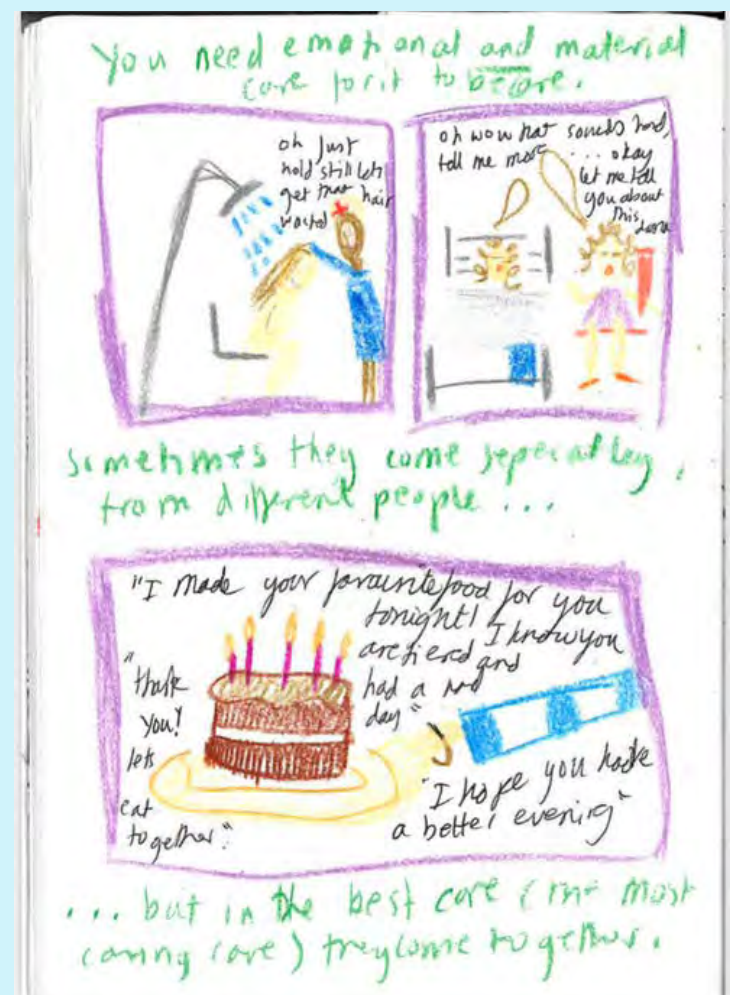 You need emotional and material
care for it to be care.
oh just
hold still lets
get that hair
washed
oh wow that sounds hard,
tell me more
... okay
let me tell
you about
this
Sometimes they come seperatley,
from different people ...
"I made your favourite food for you
tonight! I know you
are tierd and
had a
day"
"thank
you!
lets
eat
together".
"I hope you have
a better evening"
... but in the best care (the most
caring care) they come together.